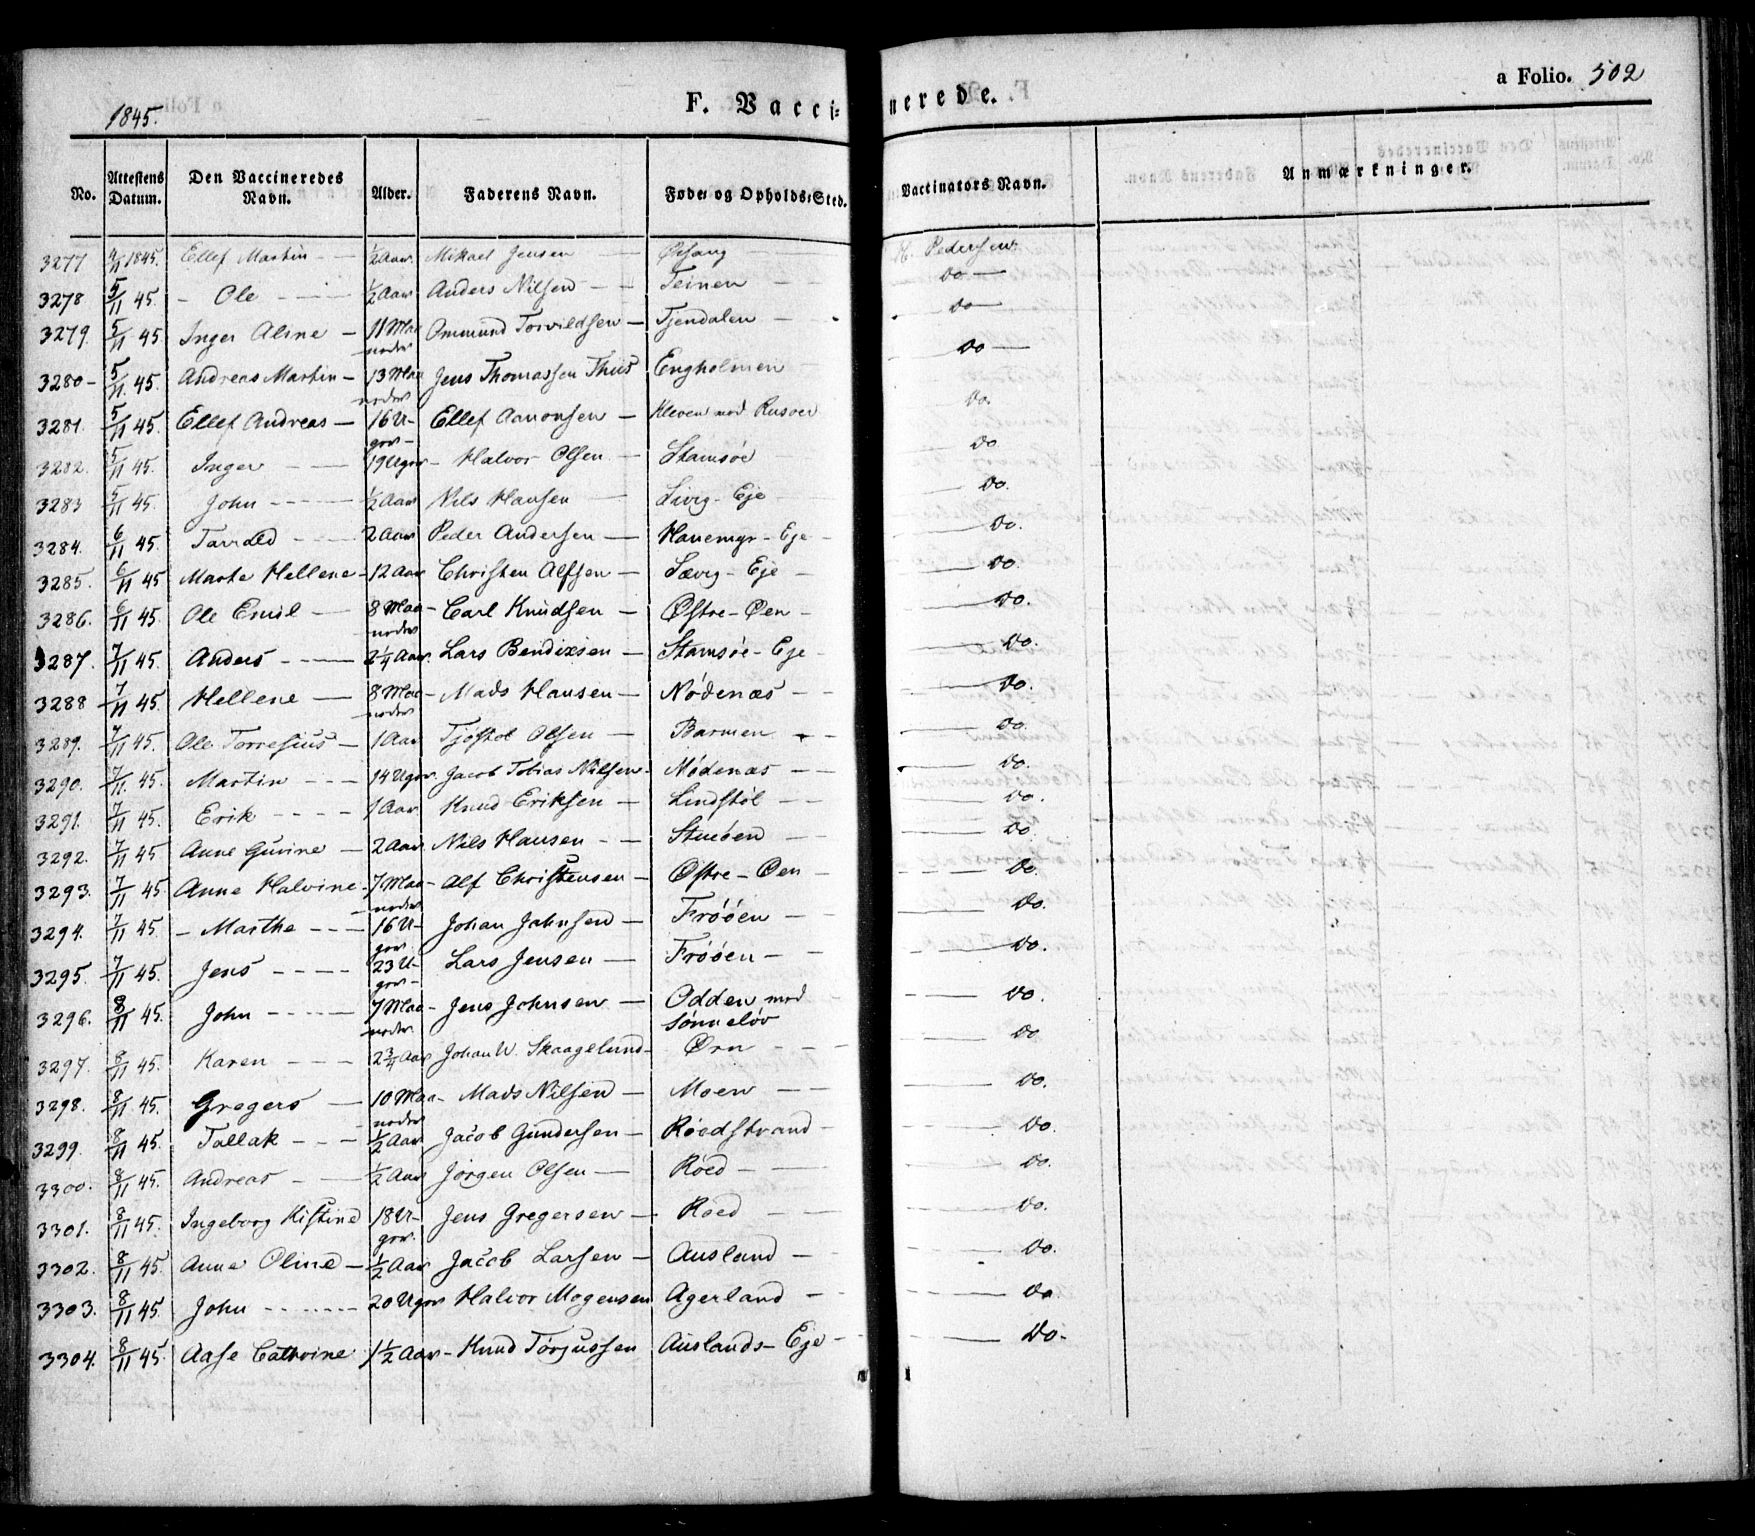 1845.
F. Vacci=
nerede.
a Folio. 502
No. Attestens Datum. Den Vaccineredes Navn. Alder. Faderens Navn. Føde- og Opholds-Sted. Vaccinators Navn. Anmærkninger.
3277 4/11 1845. Ellef Martin - 1/2 Aar Mikael Jensen - H. Pedersen
3278 5/11 45. - Ole - 1/2 Aar Anders Nilsen - Teinen - Do -
3279. 5/11 45 Inger Aline - 11 Maa noder Ommund Torvildsen - Tjendalen - Do -
3280 - 5/11. 45. Andreas Martin - 13 Maa noder Jens Thomassen Thiis Engholmen - Do -
3281. 5/11 45. Ellef Andreas - 16 U- ger - Ellef Aanonsen - Kleven med Rusøer Do.
3282. 5/11 45. Inger - 19 Uger - Halvor Olsen - Stamsøe Do
3283 5/11 45. John - 1/2 Aar Nils Hansen - Sivig - Eje Do.
3284. 6/11 45. Tarald - 2 Aar Peder Andersen - Hanemyr - Eje - Do.
3285. 6/11 45 Marte Hellene - 12 Aar Christen Alfsen - Sævig - Eje - Do.
3286. 6/11 45. Ole Emil - 8 Maa- noder Carl Knudsen - Østre - Øen - Do.
3287. 7/11 45. Anders - 2 1/4 Aar. Lars Bendixsen - Stamsøe - Eje - Do.
3288 7/11 45. Hellene - 8 Maa- noder Mads Hansen - Nødenæs - Do.
3289. 7/11 45. Ole Torresius - 1 Aar Tjøstol Olsen - Barmen - Do
3290. 7/11. 45. Martin - 14 Uger. Jacob Tobias Nilsen - Nødenæs - Do.
3291. 7/11 45. Erik - 1 Aar Knud Eriksen - Lindstøl - Do.
3292. 7/11 45 Anne Guvine - 2 Aar Nils Hansen - Stueøen - Do.
3293. 7/11 45. Anne Halvine - 7 Maa- noder Alf Christensen - Østre - Øen - Do.
3294. 7/11 45. - Marthe - 16 U- ger Johan Jahnsen - Frøøen - Do.
3295. 7/11 45. Jens - 23 U- ger - Lars Jensen - Frøøen - Do.
3296. 8/11 45. John - 7 Maa- noder Jens Johnsen - Odden med Sønneløv Do.
3297. 8/11 45. Karen - 2 3/4 Aar Johan W. Skaagelund - Ørn - Do
3298. 8/11 45. Gregers - 10 Maa- noder Mads Nilsen - Moen - Do.
3299. 8/11 45. Tallak - 1/2 Aar Jacob Gundersen - Røedstrand - Do.
3300. 8/11 45. Andreas - 1/2 Aar Jørgen Olsen - Røed - Do.
3301. 8/11 45. Ingeborg Kistine 18 U- ger. Jens Gregersen - Røed - Do.
3302. 8/11 45. Anne Oline - 1/2 Aar Jacob Larsen - Ausland - Do.
3303. 8/11 45. John - 20 Uger Halvor Mogensen Agerland - Do
3304. 8/11 45. Aase Cathrine 1 1/2 Aar - Knud Tørjussen Auslands - Eje - Do -